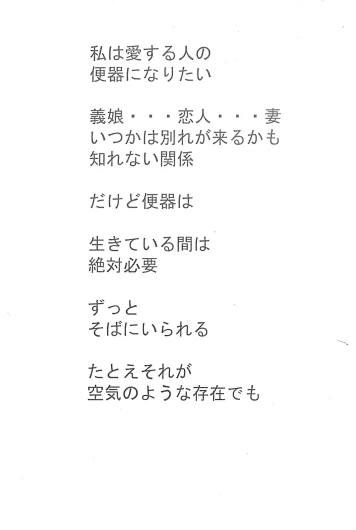 私は愛する人の
便器になりたい
義娘・・・恋人・・・妻
いつかは別れが来るかも
知れない関係
だけど便器は
生きている間は
絶対必要
ずっと
そばにいられる
たとえそれが
空気のような存在でも